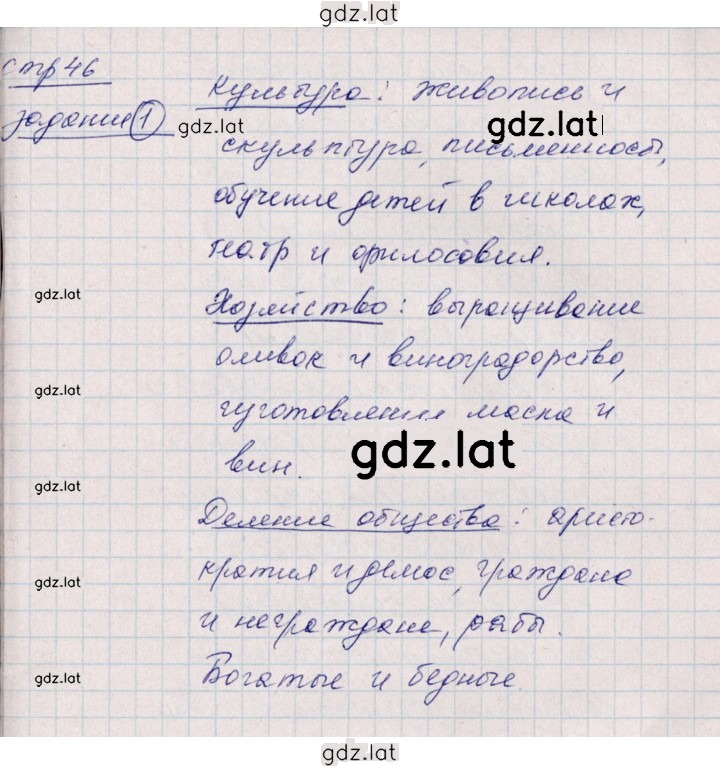 gdz.lat
стр 46
Культура: живопись и
задание 1
gdz.lat
gdz.lat
скульптура, письменность,
обучение детей в школах,
театр и философия.
gdz.lat
Хозяйство: выращивание
оливок и виноградорство,
gdz.lat
изготовление масла и
вин.
gdz.lat
gdz.lat
Деление общества: аристо-
кратия и демос, граждане
gdz.lat
и неграждане, рабы.
Богатые и бедные
gdz.lat
gdz.lat